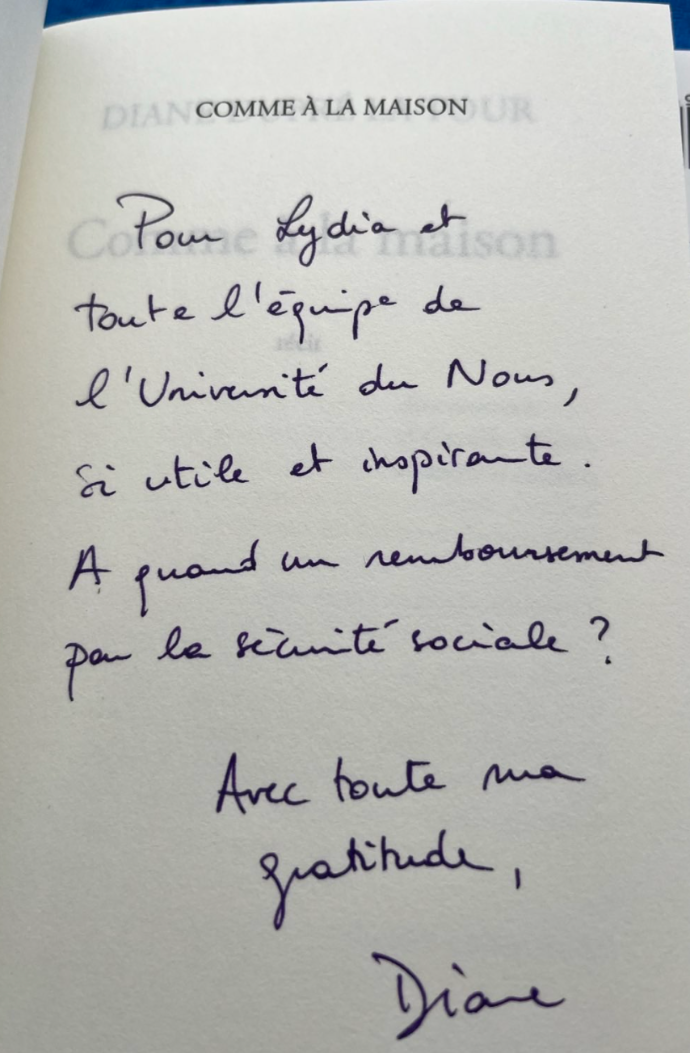 COMME À LA MAISON
Pour Lydia et
toute l'équipe de
l'Université du Nous,
si utile et inspirante.
A quand un remboursement
par la sécurité sociale ?
Avec toute ma
gratitude,
Diane
DIANE DUPRÉ LA TOUR
Comme à la maison
récit